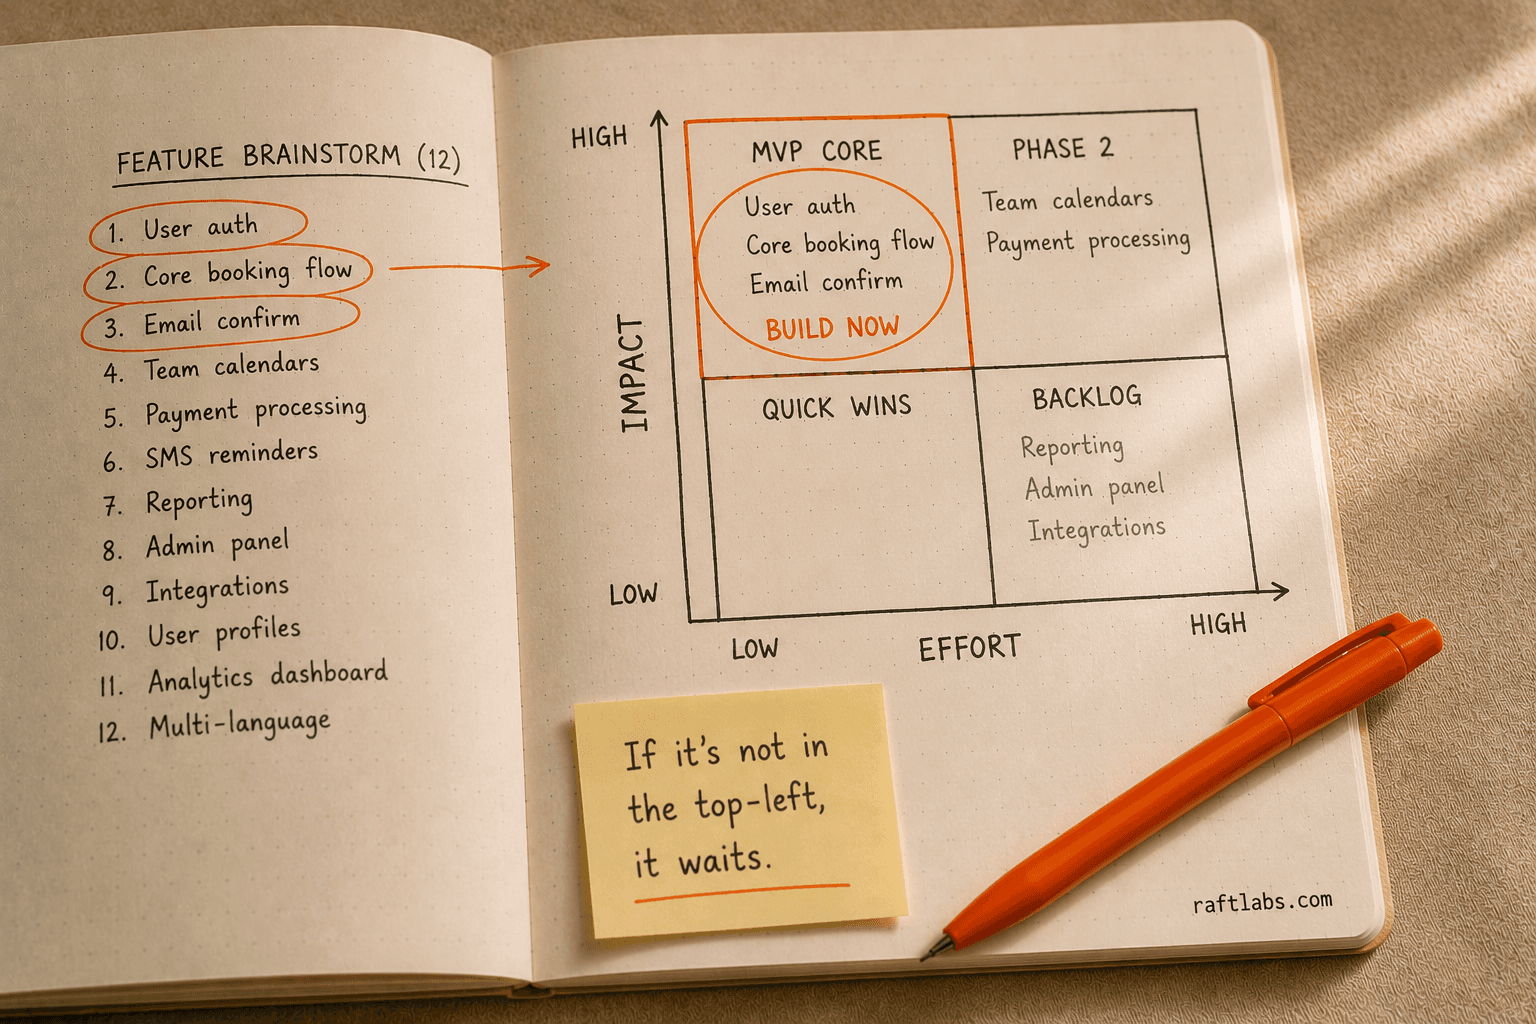 FEATURE BRAINSTORM (12)
1. User auth
2. Core booking flow
3. Email confirm
4. Team calendars
5. Payment processing
6. SMS reminders
7. Reporting
8. Admin panel
9. Integrations
10. User profiles
11. Analytics dashboard
12. Multi-language
HIGH
IMPACT
LOW
MVP CORE
User auth
Core booking flow
Email confirm
BUILD NOW
PHASE 2
Team calendars
Payment processing
QUICK WINS
BACKLOG
Reporting
Admin panel
Integrations
LOW
EFFORT
HIGH
If it's not in
the top-left,
it waits.
raftlabs.com